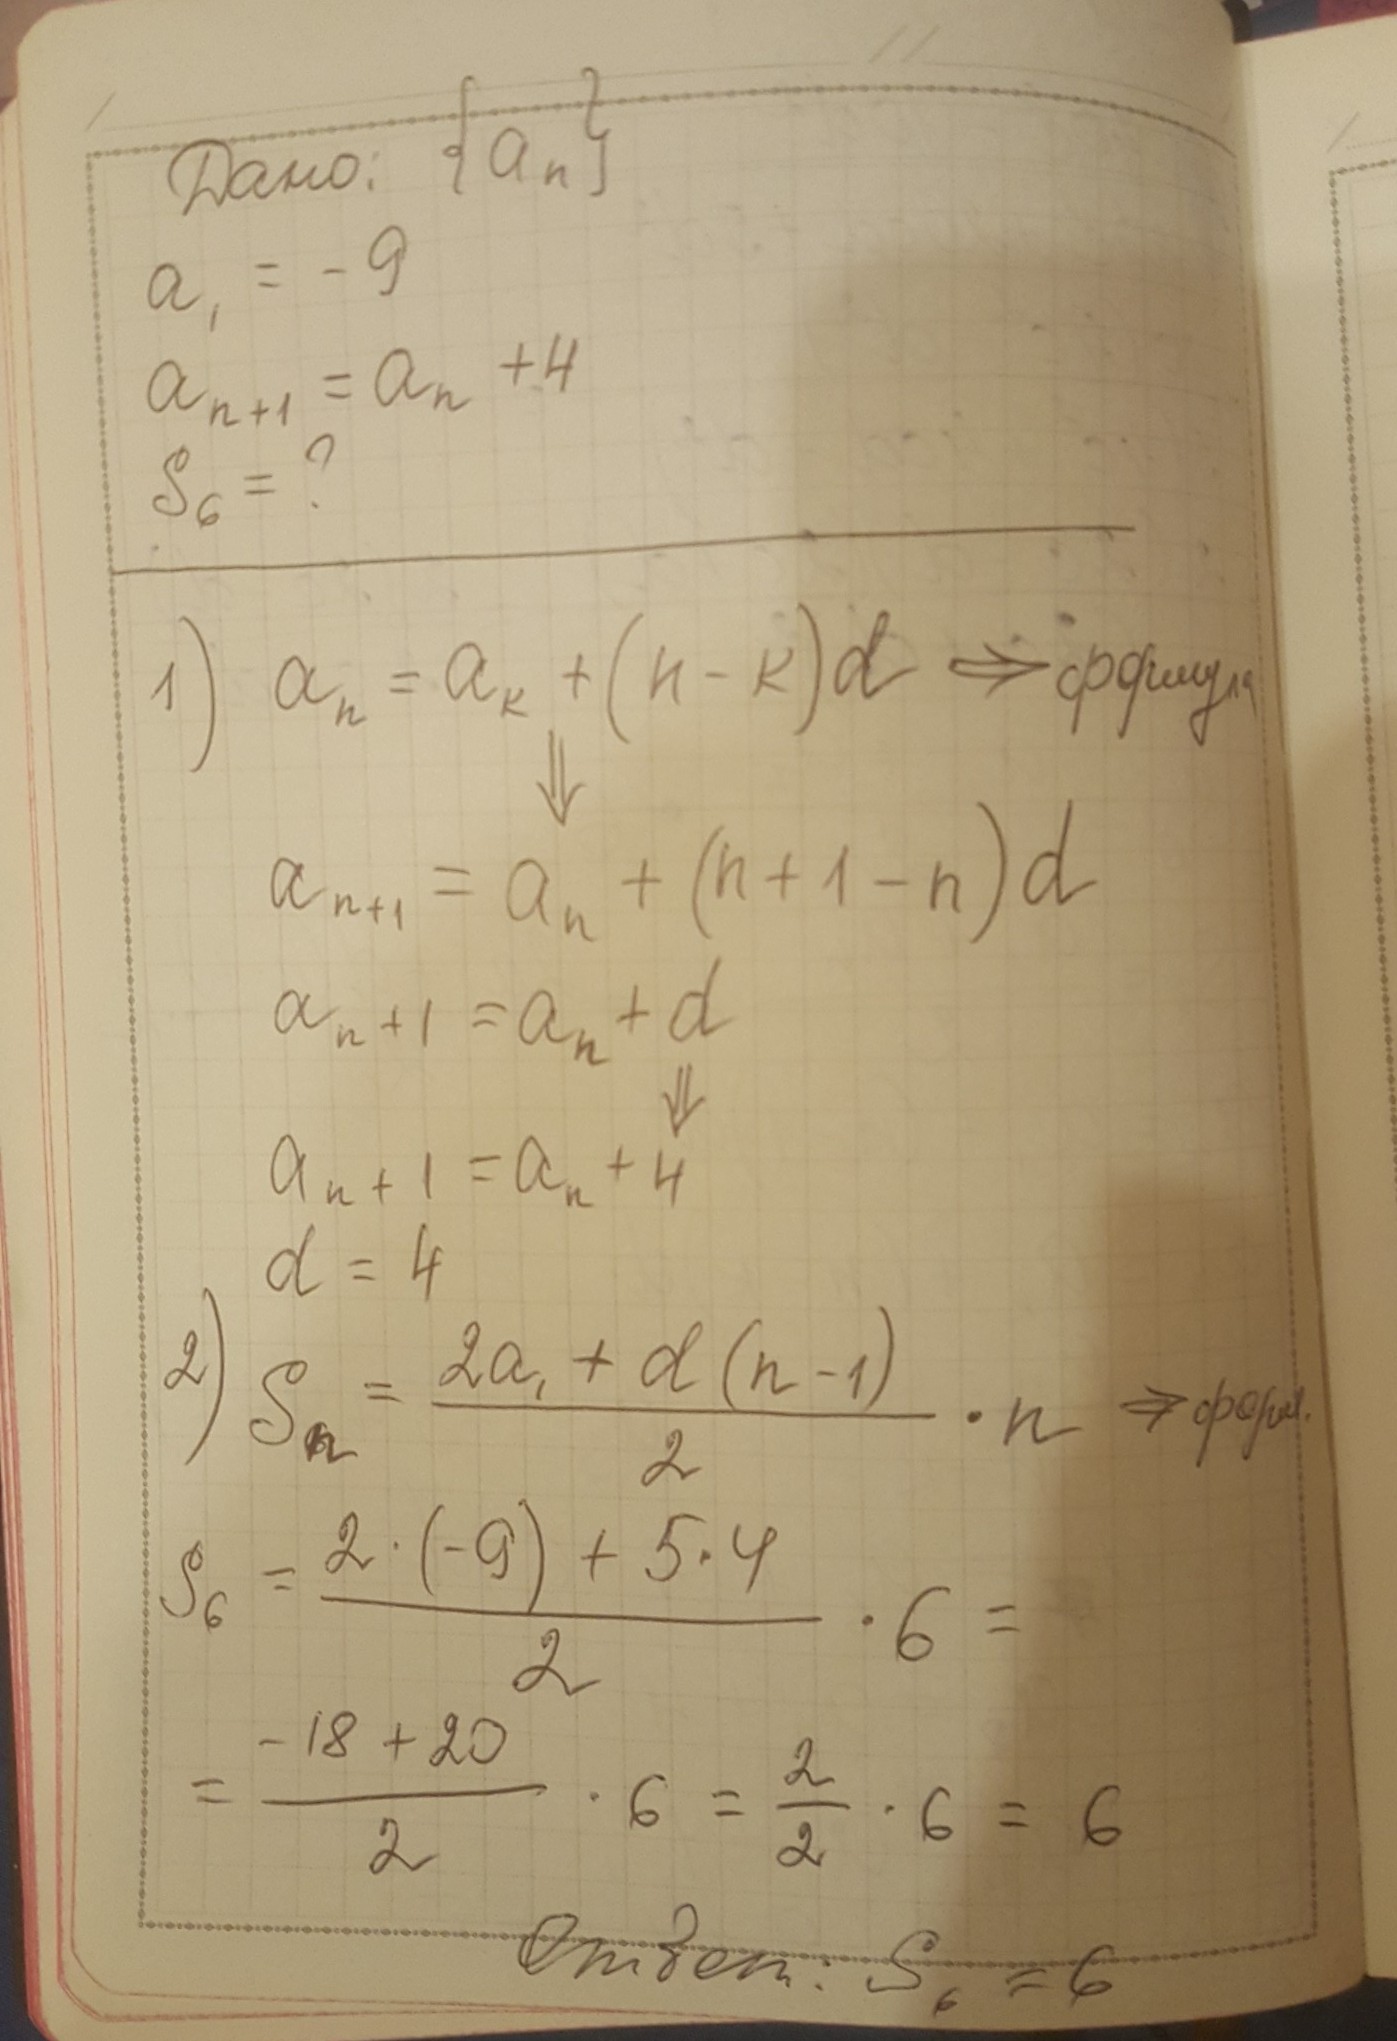 Дано: {aₙ}
a₁ = -9
aₙ₊₁ = aₙ + 4
S₆ = ?
1) aₙ = aₖ + (n - k)d ⇒ формула
⇓
aₙ₊₁ = aₙ + (n + 1 - n)d
aₙ₊₁ = aₙ + d
⇓
aₙ₊₁ = aₙ + 4
d = 4
2) Sₙ = (2a₁ + d(n - 1))/2 · n ⇒ форм.
S₆ = (2·(-9) + 5·4)/2 · 6 =
= (-18 + 20)/2 · 6 = 2/2 · 6 = 6
Ответ: S₆ = 6